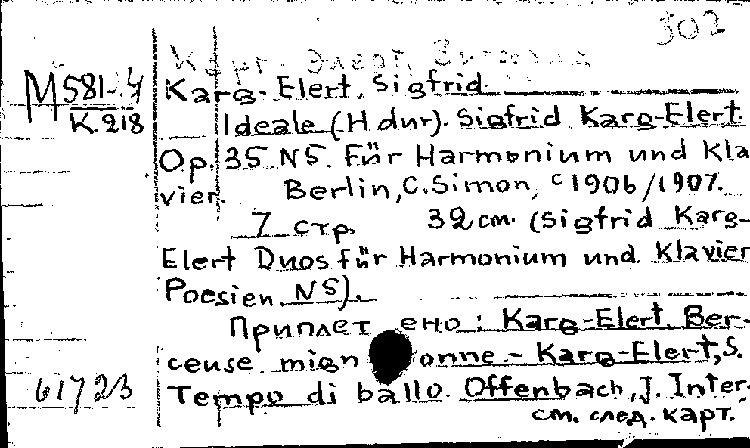 302
Карг-Элерт, Зигфрид
М581-4 Karg-Elert, Sigfrid.
К.218 Ideale (H dur). Sigfrid Karg-Elert.
Op. 35 N5. Für Harmonium und Kla
vier. Berlin, C. Simon, c 1906/1907.
7 стр. 32 см. (Sigfrid Karg-
Elert Duos für Harmonium und Klavier
Poesien. N5).
Приплетено: Karg-Elert. Ber-
ceuse mignonne - Karg-Elert, S.
61723 Tempo di ballo. Offenbach, J. Inter.
см. след. карт.